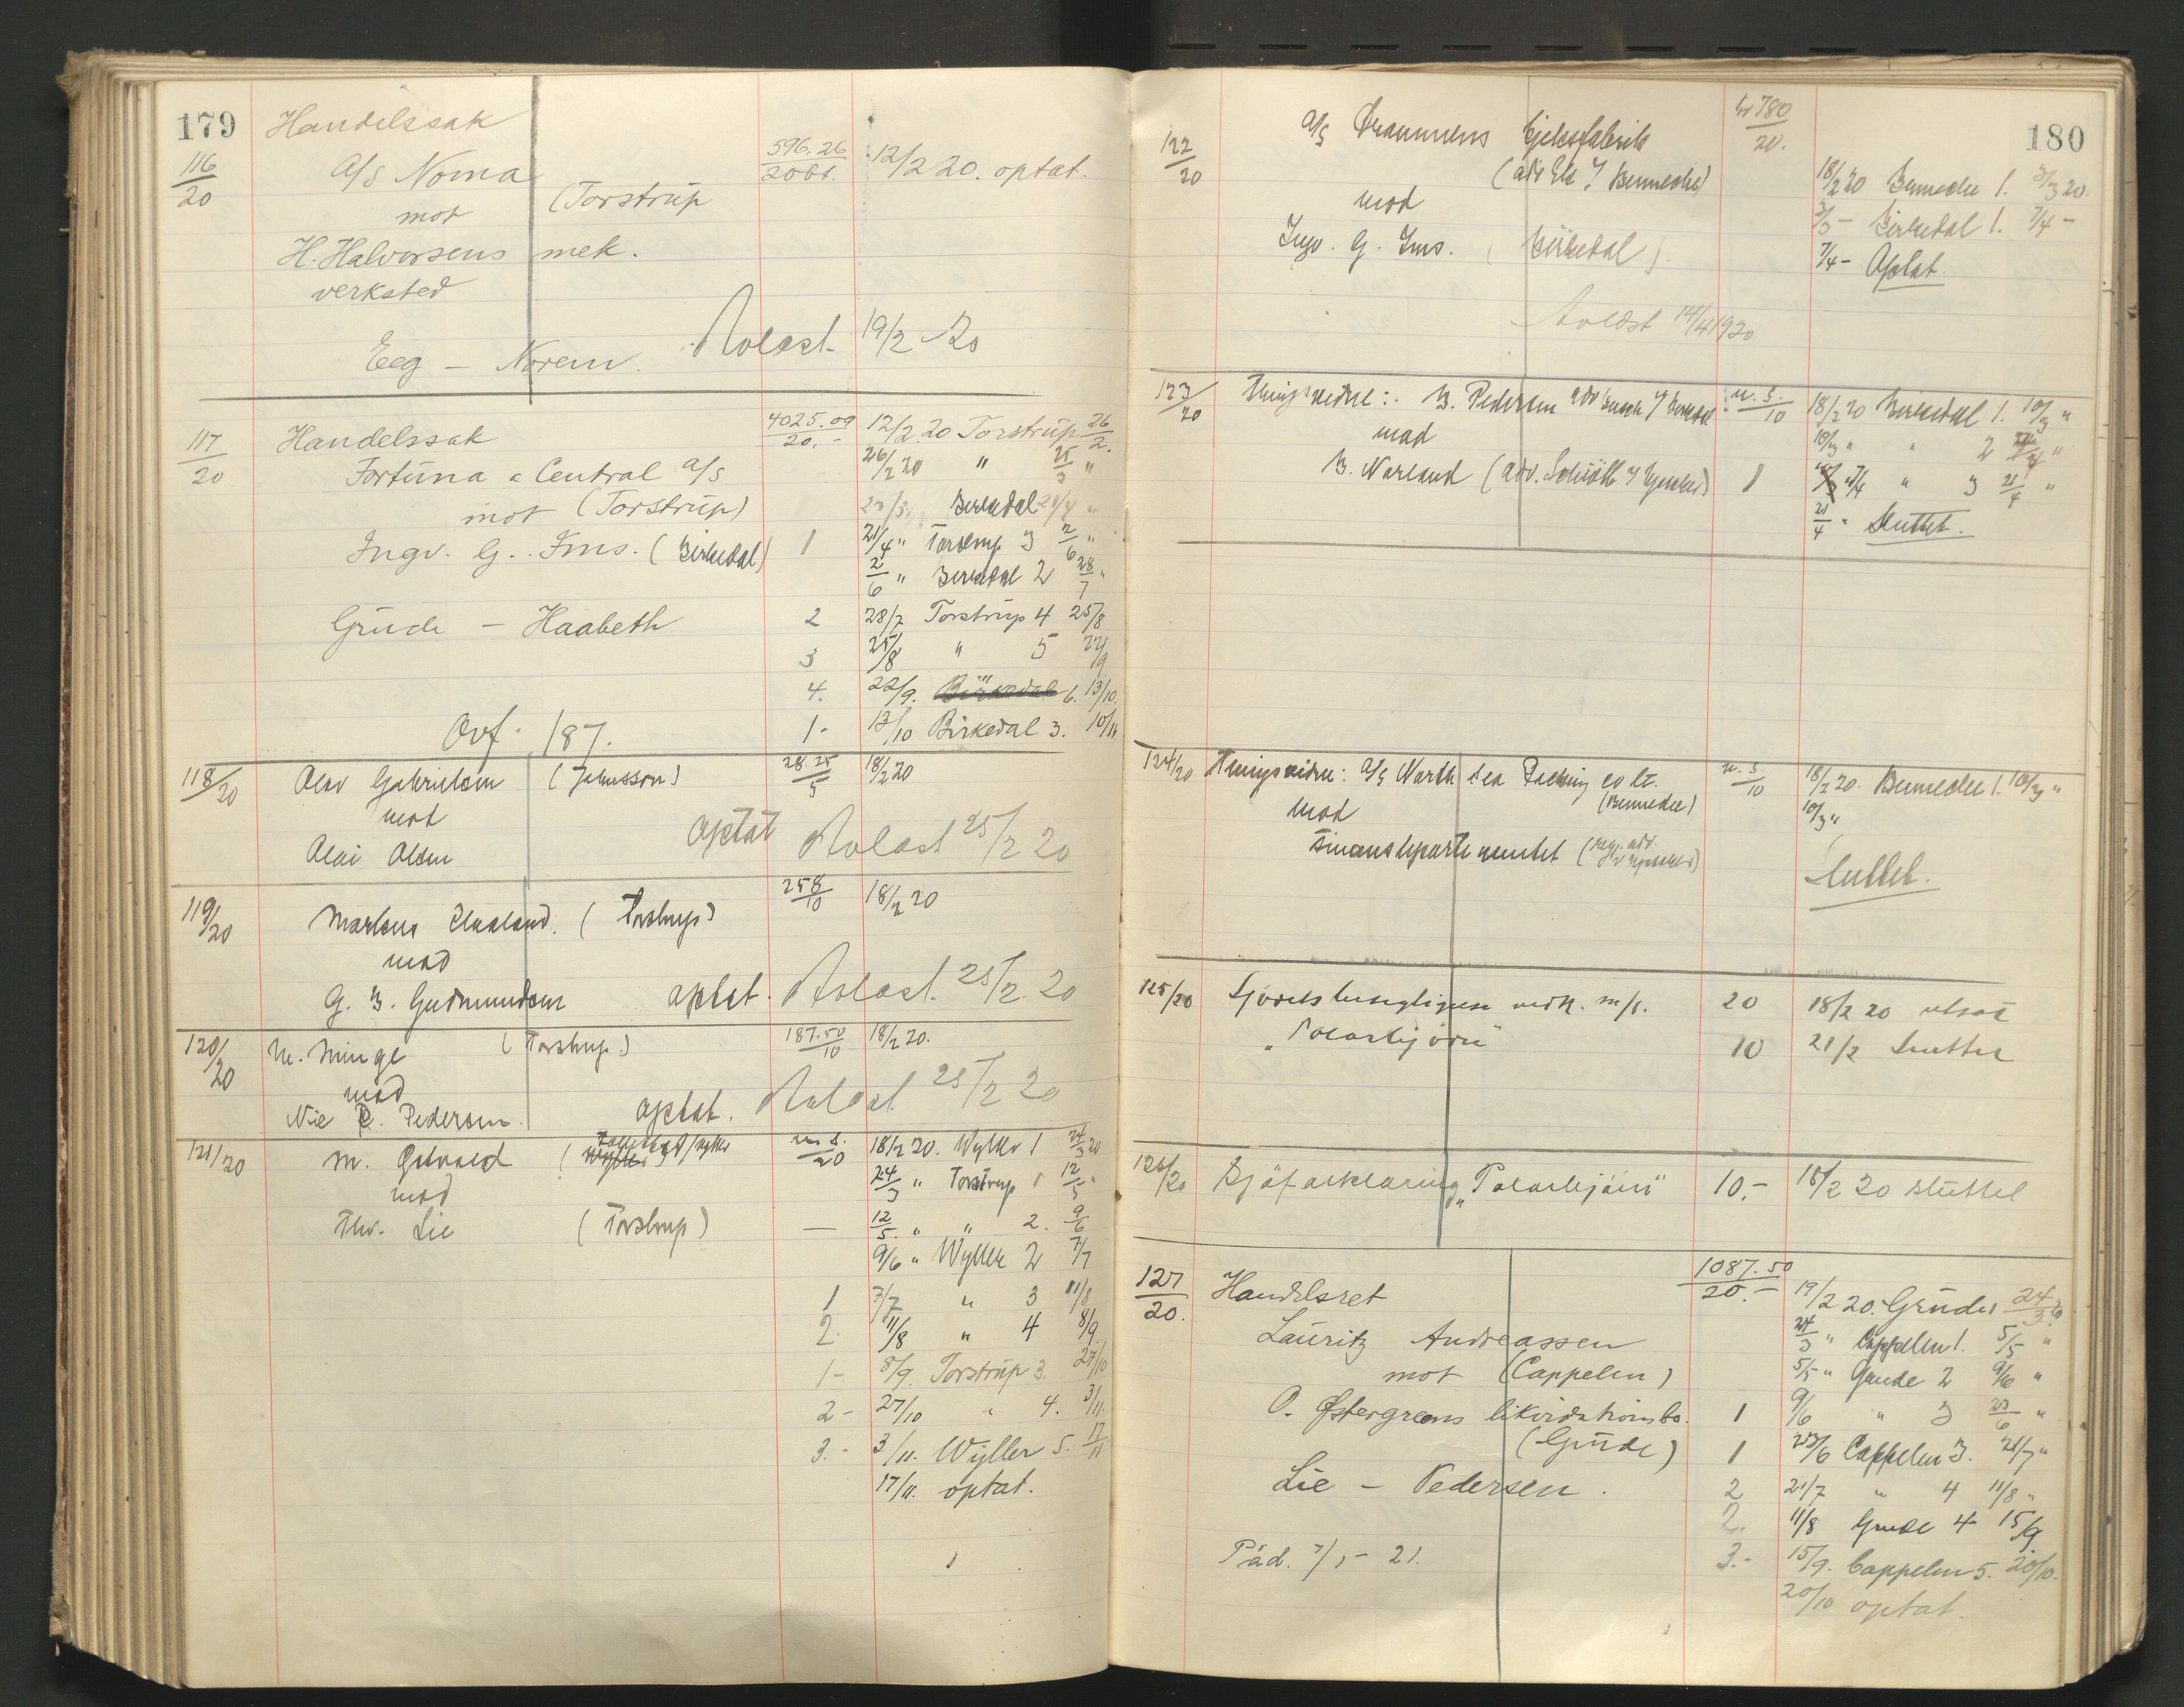 179
Handelssak
116/20
A/S Norna
596.26
20 bt.
12/2 20. optat.
mot (Torstrup
H. Halvorsens mek.
verksted
Eeg – Norem.
Avlæst 19/2 20
117/20
Handelssak
4025.09
20.-
12/2 20 Torstrup 26/2.
Fortuna & Central A/S
26/2 20 " 25/3 "
mot (Torstrup)
Birkedal 21/4 "
Ingv. G. Ims. (Birkedal)
1 21/4 " Torstrup 3 2/6 "
2/6 " Birkedal 2 28/7 "
Grude – Haabeth
2 28/7 Torstrup 4 25/8
3 25/8 " 5 22/9
4. 22/9. Birkedal 6. 13/10.
Ovf. 187.
1- 13/10 Birkedal 3. 10/11.
118/20
Olav Gabrielsen (Johnsson)
28.25
5
18/2 20
mot
optat Avlæst 25/2 20
Olai Olsen
119/20
258
10
18/2 20
(Torstrup)
mod
G. B. Gudmundsen
optat. Avlæst. 25/2. 20
120/20
M. Minge (Torstrup.)
187.50
10
18/2 20.
mod
Nic Pedersen.
optat. Avlæst 25/2 20
121/20
M. Wyller
u. s.
20
18/2 20. Wyller 1 24/3 20
mod
24/3 " Torstrup 1 12/5 "
Thv. Lie (Torstrup)
— 12/5. " " 2. 9/6
9/6 " Wyller 2 7/7
1 7/7 " 3 11/8
2. 11/8 " 4 8/9.
1- 8/9. Torstrup 3. 27/10
2- 27/10 " 4. 3/11.
3.- 3/11. Wyller 5. 17/11
17/11. optat.
180
122/20
A/S Drammens
kr 780
20.
Bennechе)
18/2 20 Benneche 1. 3/3 20.
mod
3/3 – Birkedal 1. 7/4 –
Ingv. G. Ims. (Birkedal)
7/4 – Optat.
Avlæst 14/4 1920
123/20
B. Pedersen
u. s.
10
18/2 20 Birkedal 1. 10/3 "
mod
10/3 " " 2
B. Narland
1 7/4 " 3 21/4 "
21/4 " Sluttet.
124/20
A/S North Sea Packing co lt.
(Benneche)
u. s.
10
18/2 20. Benneche 1. 10/3 "
mod
10/3 "
Finansdepartementet
Sluttet.
125/20
m/s.
20 18/2 20 utsat
"Polarbjörn"
10 21/2 Sluttet
126/20
Sjöforklaring "Polarbjörn"
10.- 18/2 20 sluttet
127/20.
Handelsret
1087.50
20.-
19/2 20. Grude 1 24/3 20
Lauritz Andreassen
24/3 " Cappelen 1. 5/5 "
mot (Cappelen)
5/5 " Grude 2 9/6 "
O. Østergreens likvidationsbo.
1 9/6 " 3 23/6 "
(Grude)
1 23/6 Cappelen 3. 21/7 "
Lie – Pedersen.
2 21/7 " 4 11/8 "
2. 11/8 Grude 4 15/9
Påd. 7/1 – 21.
3.- 15/9. Cappelen 5. 20/10.
20/10 optat.